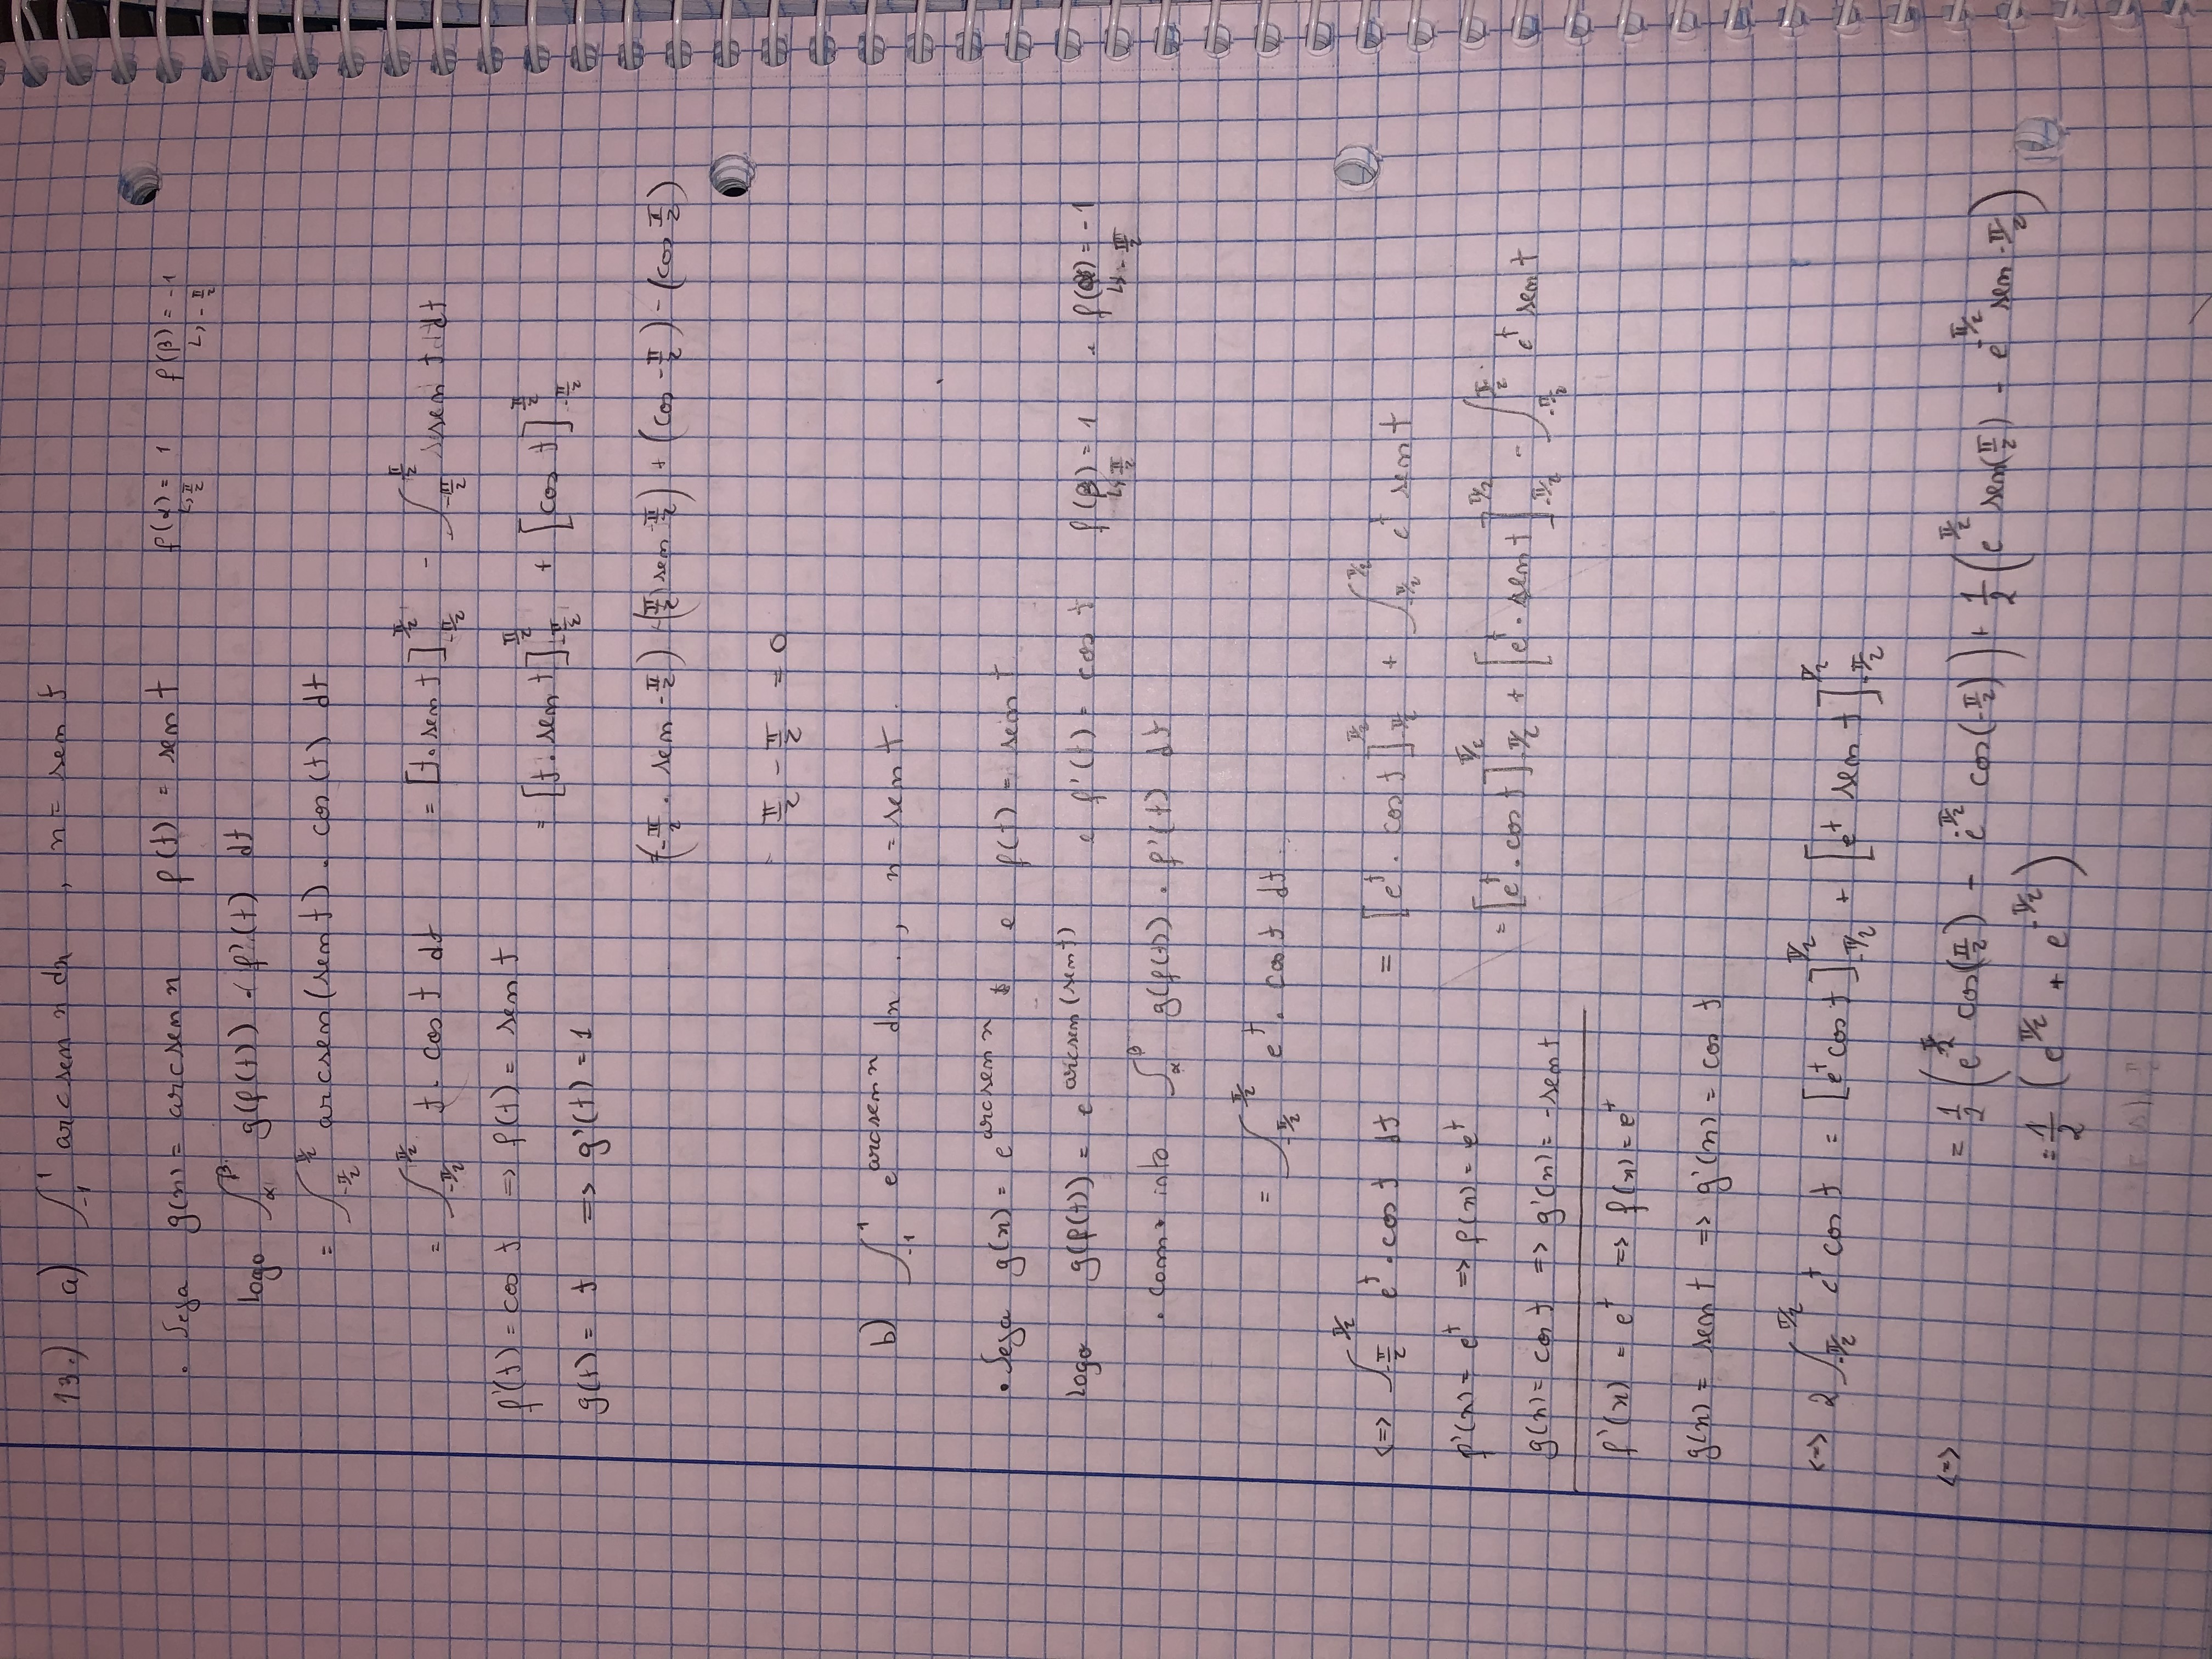 13.) a) ∫_{-1}^{1} arcsen x dx , x = sen t
. Seja g(x) = arcsen x f(t) = sen t f(α) = 1 f(β) = -1
↳ π/2 ↳ -π/2
logo ∫_α^β g(f(t)) . f'(t) dt
= ∫_{-π/2}^{π/2} arcsen(sen t) . cos(t) dt
= ∫_{-π/2}^{π/2} t . cos t dt = [t . sen t]_{-π/2}^{π/2} - ∫_{-π/2}^{π/2} sen t dt
f'(t) = cos t => f(t) = sen t
= [t . sen t]_{-π/2}^{π/2} + [cos t]_{-π/2}^{π/2}
g(t) = t => g'(t) = 1
=(-π/2 . sen -π/2) - (π/2) sen -π/2) + (cos -π/2) - (cos π/2)
= π/2 - π/2 = 0
b) ∫_{-1}^{1} e^{arcsen x} dx . , x = sen t .
. Seja g(x) = e^{arcsen x} e f(t) = sen t
logo g(f(t)) = e^{arcsen(sen t)} e f'(t) = cos t f(β) = 1 e f(α) = -1
↳ π/2 ↳ -π/2
. com isto ∫_α^β g(f(t)) . f'(t) dt
= ∫_{-π/2}^{π/2} e^t . cos t dt .
<=> ∫_{-π/2}^{π/2} e^t . cos t dt = [e^t . cos t]_{-π/2}^{π/2} + ∫_{-π/2}^{π/2} e^t sen t
f'(x) = e^t => f(x) = e^t
= [e^t . cos t]_{-π/2}^{π/2} + [e^t . sen t]_{-π/2}^{π/2} - ∫_{-π/2}^{π/2} e^t sen t
g(x) = cos t => g'(x) = -sen t
f'(x) = e^t => f(x) = e^t
g(x) = sen t => g'(x) = cos t
<=> 2 ∫_{-π/2}^{π/2} e^t cos t = [e^t cos t]_{-π/2}^{π/2} + [e^t sen t]_{-π/2}^{π/2}
<=> = 1/2 (e^{π/2} cos(π/2) - e^{-π/2} cos(-π/2)) + 1/2 (e^{π/2} sen(π/2) - e^{-π/2} sen -π/2)
= 1/2 (e^{π/2} + e^{-π/2})